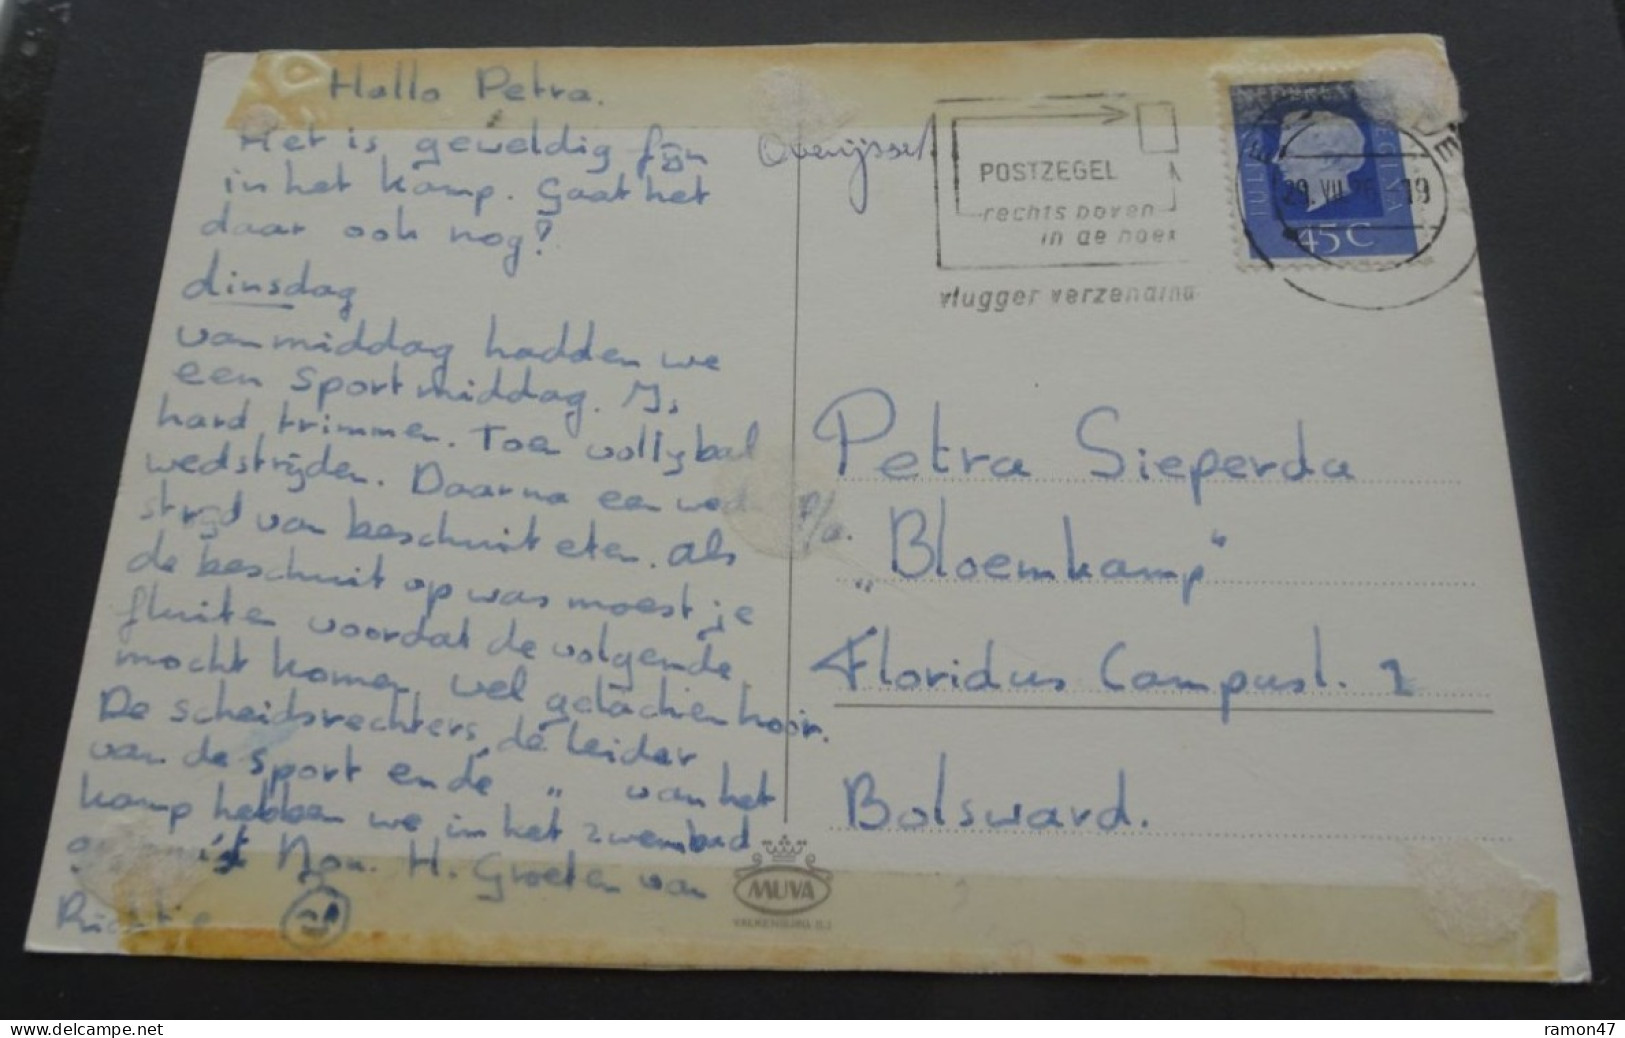 Hallo Petra.
Het is geweldig fijn
in het kamp. Gaat het
daar ook nog?
dinsdag
vanmiddag hadden we
een sportmiddag. Is
hard trimmen. Toen vollybal
wedstrijden. Daarna een wed
strijd van beschuit eten. als
de beschuit op was moest je
fluiten voordat de volgende
mocht komen, wel gelachen hoor.
De scheidsrechters, de leider
van de sport en de " van het
kamp hebben we in het zwembad
Nou. H. Groeten van
Overijssel
POSTZEGEL
rechts boven
in de hoek
vlugger verzending
NEDERLAND
JULIANA REGINA
45C
29. VII. 19
Petra Sieperda
p/a. „Bloemkamp"
Floridus Campusl. 1
Bolsward.
MUVA
VALKENBURG (L.)
www.delcampe.net
ramon47